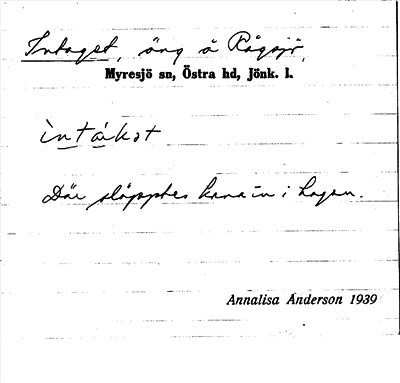 Intaget, äng å Rågsjö,
Myresjö sn, Östra hd, Jönk. l.
ìntákət
Där släpptes korna in i hagen.
Annalisa Anderson 1939